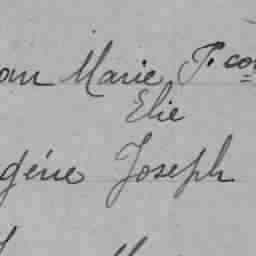 an Marie P. co
Elie
gène Joseph